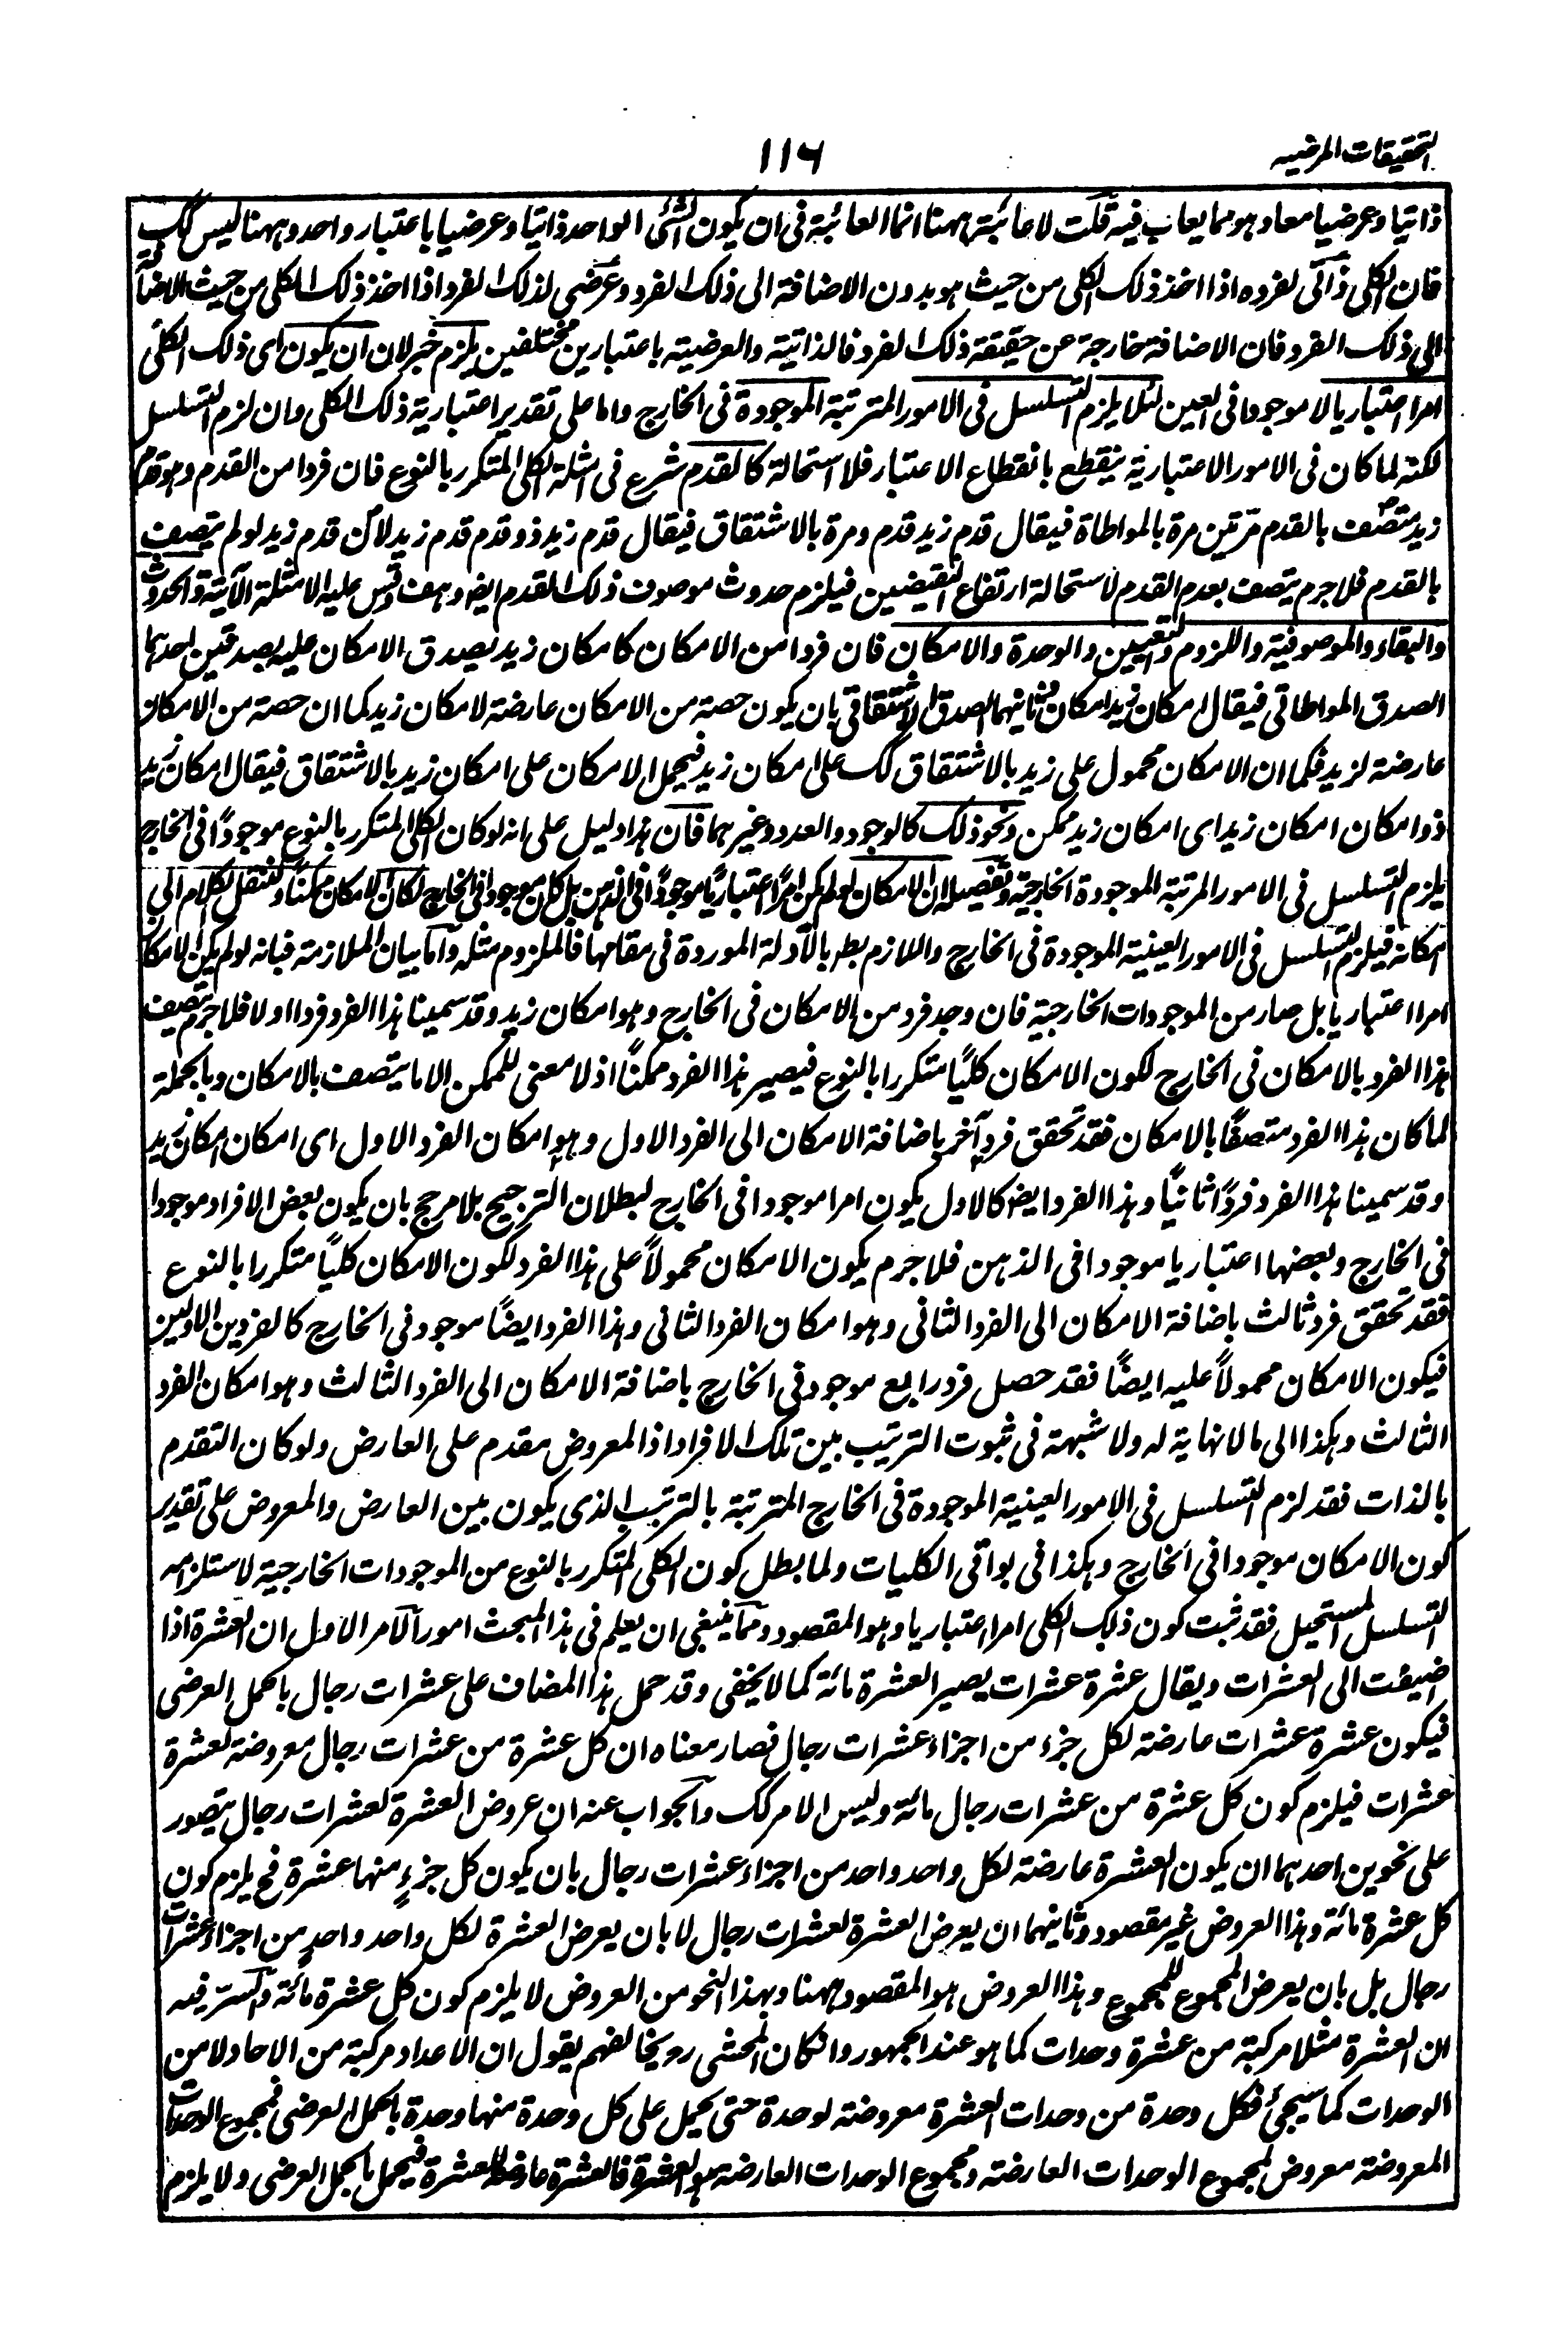 التحقيقات المرضيه
١١٦
ذاتيا وعرضيا معا وهو مما يعاب فيه قلت لا عائبة ههنا انما العائبة فى ان يكون الشئ الواحد ذاتيا وعرضيا باعتبار واحد وههنا ليس كك
فان الكلى ذاتى لفرده اذا اخذ ذلك الكلى من حيث هو بدون الاضافة الى ذلك الفرد وعرضى لذلك الفرد اذا اخذ ذلك الكلى من حيث الاضافة
الى ذلك الفرد فان الاضافة خارجة عن حقيقة ذلك الفرد فالذاتية والعرضية باعتبارين مختلفين يلزم خبر لان ان يكون اى ذلك الكلى
امرا اعتباريا لا موجودا فى العين لئلا يلزم التسلسل فى الامور المترتبة الموجودة فى الخارج واما على تقدير اعتبارية ذلك الكلى وان لزم التسلسل
لكنه لما كان فى الامور الاعتبارية ينقطع بانقطاع الاعتبار فلا استحالة كالقدم شرع فى امثلة الكلى المتكرر بالنوع فان فردا من القدم وهو قدم
زيد متصف بالقدم مرتين مرة بالمواطاة فيقال قدم زيد قدم ومرة بالاشتقاق فيقال قدم زيد ذو قدم قدم زيد لان قدم زيد لو لم يتصف
بالقدم فلا جرم يتصف بعدم القدم لاستحالة ارتفاع النقيضين فيلزم حدوث موصوف ذلك القدم ايضا وهف وقس عليه الامثلة الآتية والحدوث
والبقاء والموصوفية واللزوم والتعيين والوحدة والامكان فان فردا من الامكان كامكان زيد يصدق الامكان عليه بصدقين احدهما
الصدق المواطاتى فيقال امكان زيد امكان وثانيهما الصدق الاشتقاقى بان يكون حصة من الامكان عارضة لامكان زيد كما ان حصة من الامكان
عارضة لزيد فكما ان الامكان محمول على زيد بالاشتقاق كك على امكان زيد فيحمل الامكان على امكان زيد بالاشتقاق فيقال امكان زيد
ذو امكان امكان زيد اى امكان زيد ممكن ونحو ذلك كالوجود والعدد وغيرهما فان هذا دليل على انه لو كان الكلى المتكرر بالنوع موجودًا فى الخارج
يلزم التسلسل فى الامور المرتبة الموجودة الخارجية وتفصيله ان الامكان لو لم يكن امرًا اعتباريًا موجودًا فى الذهن بل كان موجودا فى الخارج لكان الامكان ممكنًا وننقل الكلام الى
امكانه فيلزم التسلسل فى الامور العينية الموجودة فى الخارج واللازم بط بالادلة الموردة فى مقامها فالملزوم مثله واما بيان الملازمة فبانه لو لم يكن الامكان
امرا اعتباريا بل صار من الموجودات الخارجية فان وجد فرد من الامكان فى الخارج وهو امكان زيد وقد سمينا هذا الفرد فردا اولا فلا جرم يتصف
هذا الفرد بالامكان فى الخارج لكون الامكان كليًا متكررا بالنوع فيصير هذا الفرد ممكنًا اذ لا معنى للممكن الا ما يتصف بالامكان وبالجملة
لما كان هذا الفرد متصفًا بالامكان فقد تحقق فرد آخر باضافة الامكان الى الفرد الاول وهو امكان الفرد الاول اى امكان امكان زيد
وقد سمينا هذا الفرد فردًا ثانيًا وهذا الفرد ايضا كالاول يكون امرا موجودا فى الخارج لبطلان الترجيح بلا مرجح بان يكون بعض الافراد موجودا
فى الخارج وبعضها اعتباريا موجودا فى الذهن فلا جرم يكون الامكان محمولاً على هذا الفرد لكون الامكان كليًا متكررا بالنوع
فقد تحقق فرد ثالث باضافة الامكان الى الفرد الثانى وهو امكان الفرد الثانى وهذا الفرد ايضًا موجود فى الخارج كالفردين الاولين
فيكون الامكان محمولاً عليه ايضًا فقد حصل فرد رابع موجود فى الخارج باضافة الامكان الى الفرد الثالث وهو امكان الفرد
الثالث وهكذا الى ما لا نهاية له ولا شبهة فى ثبوت الترتيب بين تلك الافراد اذ المعروض مقدم على العارض ولو كان التقدم
بالذات فقد لزم التسلسل فى الامور العينية الموجودة فى الخارج المترتبة بالترتب الذى يكون بين العارض والمعروض على تقدير
كون الامكان موجودا فى الخارج وهكذا فى بواقى الكليات ولما بطل كون الكلى المتكرر بالنوع من الموجودات الخارجية لاستلزامه
التسلسل المستحيل فقد ثبت كون ذلك الكلى امرا اعتباريا وهو المقصود ومما ينبغى ان يعلم فى هذا المبحث امور الامر الاول ان العشرة اذا
اضيفت الى العشرات ويقال عشرة عشرات يصير العشرة مائة كما لا يخفى وقد حمل هذا المضاف على عشرات رجال بالحمل العرضى
فيكون عشرة عشرات عارضة لكل جزء من اجزاء عشرات رجال فصار معناه ان كل عشرة من عشرات رجال معروضة لعشرة
عشرات فيلزم كون كل عشرة من عشرات رجال مائة وليس الامر كك والجواب عنه ان عروض العشرة لعشرات رجال يتصور
على نحوين احدهما ان يكون العشرة عارضة لكل واحد واحد من اجزاء عشرات رجال بان يكون كل جزءٍ منها عشرة فح يلزم كون
كل عشرة مائة وهذا العروض غير مقصود وثانيهما ان يعرض العشرة لعشرات رجال لا بان يعرض العشرة لكل واحد واحدٍ من اجزاء عشرات
رجال بل بان يعرض المجموع للمجموع وهذا العروض هو المقصود ههنا وبهذا النحو من العروض لا يلزم كون كل عشرة مائة والسر فيه
ان العشرة مثلا مركبة من عشرة وحدات كما هو عند الجمهور وان كان المحشى رح يخالفهم يقول ان الاعداد مركبة من الاحاد لا من
الوحدات كما سيجئ فكل وحدة من وحدات العشرة معروضة لوحدة حتى يحمل على كل وحدة منها وحدة بالحمل العرضى فمجموع الوحدات
المعروضة معروض لمجموع الوحدات العارضة ومجموع الوحدات العارضة هو العشرة فالعشرة عارضة للعشرة فيحمل بالحمل العرضى ولا يلزم